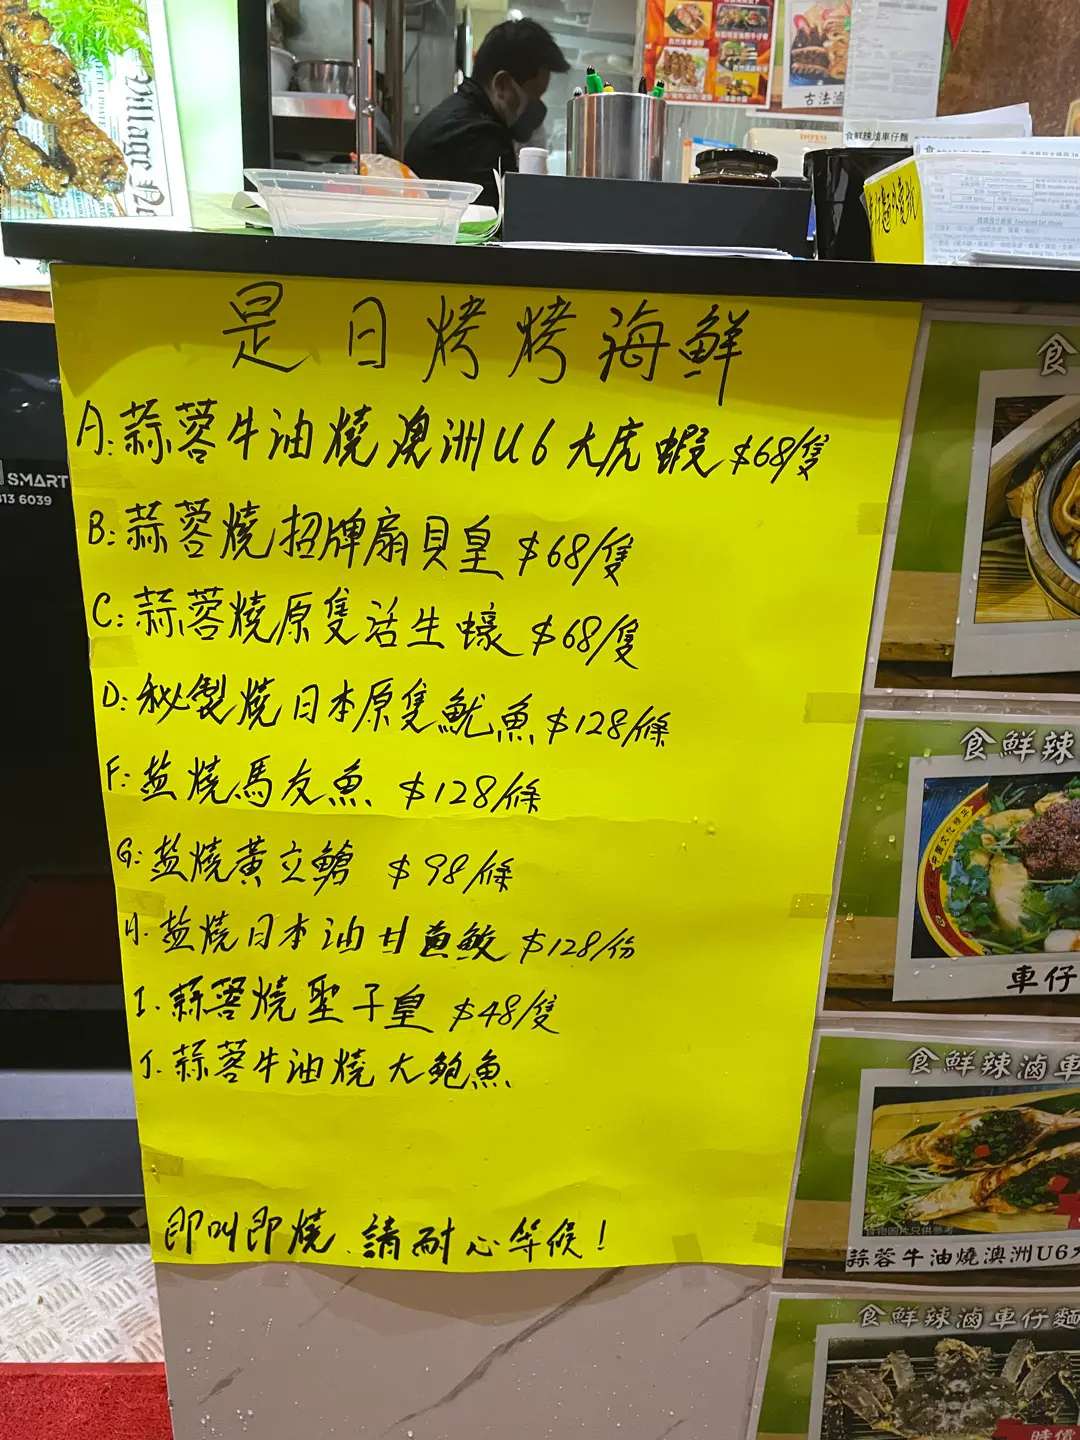 Village
古法滷
食鮮辣滷車仔麵
是日烤烤海鮮
A:蒜蓉牛油燒澳洲U6大虎蝦 $68/隻
B:蒜蓉燒招牌扇貝皇 $68/隻
C:蒜蓉燒原隻活生蠔 $68/隻
D:秘製燒日本原隻魷魚 $128/條
F:盐燒馬友魚 $128/條
G:盐燒黃立鯧 $98/條
H.盐燒日本油甘魚鮫 $128/份
I.蒜蓉燒聖子皇 $48/隻
J.蒜蓉牛油燒大鮑魚
即叫即燒 請耐心等候!
SMART
813 6039
食
食鮮辣
車仔
食鮮辣滷車
食物圖片只供參考
蒜蓉牛油燒澳洲U6
食鮮辣滷車仔麵
時價